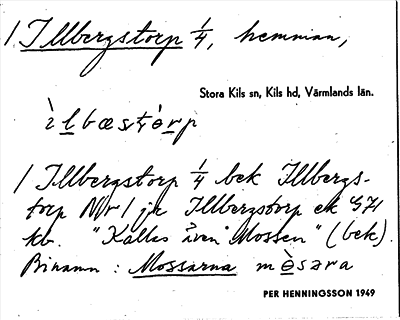 1 Illbergstorp 1/4, hemman,
Stora Kils sn, Kils hd, Värmlands län.
ìlbæstò̱rp
1 Illbergstorp 1/4 bek Illbergs-
torp Nr 1 jr Illbergstorp ek G71
kb. "Kallas även Mossen" (bek).
Binamn: Mossarna mòsəra
PER HENNINGSSON 1949